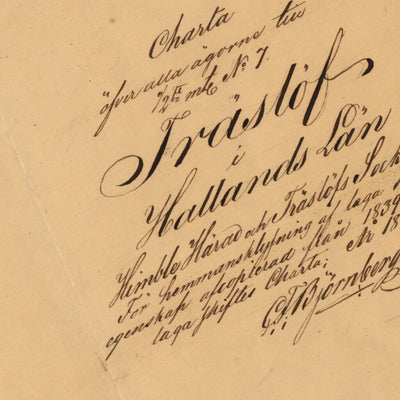 Charta
öfver alla ägorne till
1/2tt mtl No 7.
Träslöf
i
Hallands Län
Himble Härad och Träslöfs Sock
För hemmansklyfning af laga
egenskap afcopierad från 1839
laga skiftes Charta; År 18
Björnberg